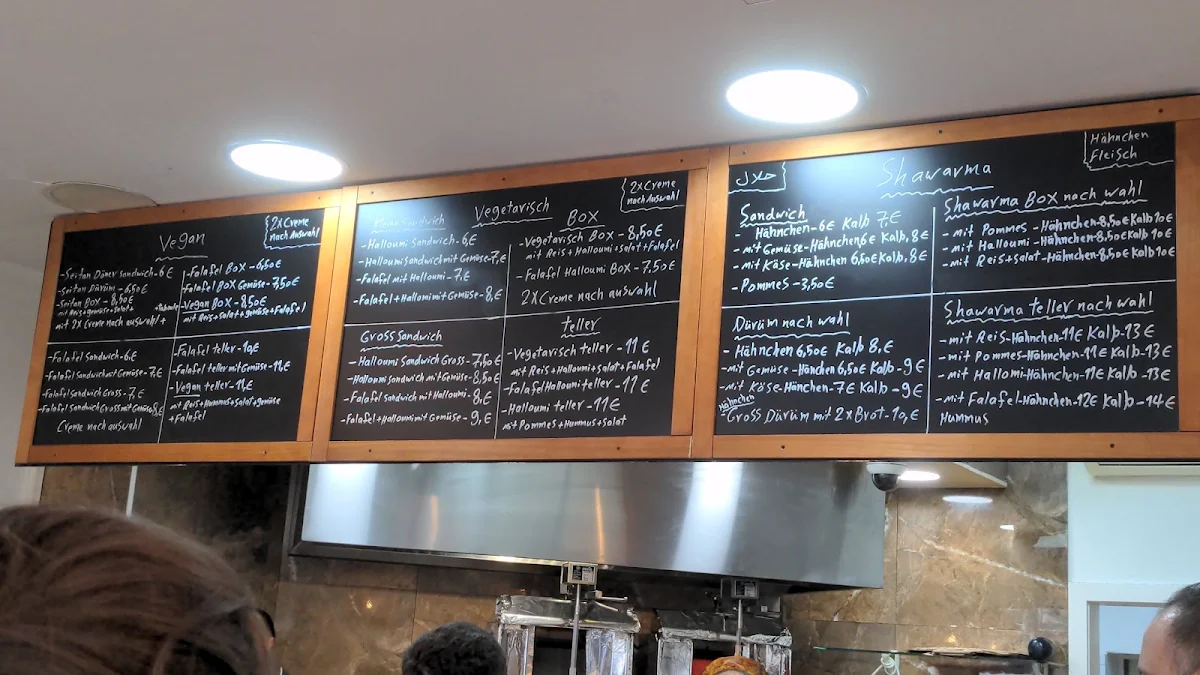 Vegan
{2x Creme
nach Auswahl}
-Seitan Döner sandwich-6€
-Seitan Dürüm-6,50€
-Seitan Box-8,50€
mit Reis+gemüse+salat+
mit 2x Creme nach auswahl+
-Falafel Box-6,50€
Falafel Box Gemüse-7,50€
-Vegan Box-8,50€
mit Reis+salat+gemüse+Falafel
-Falafel Sandwich-6€
-Falafel Sandwich mit Gemüse-7,€
-Falafel Sandwich Gross-7,€
-Falafel Sandwich Gross mit Gemüse 8,€
Creme nach auswahl
-Falafel teller-10,€
-Falafel teller mit Gemüse-11,€
-Vegan teller-11,€
mit Reis+Hummus+salat+gemüse
+Falafel
Vegetarisch
{2x Creme
nach Auswahl}
Sandwich
-Halloumi Sandwich-6,€
-Halloumi Sandwich mit Gemüse-7,€
-Falafel mit Halloumi-7,€
-Falafel+Halloumi mit Gemüse-8,€
BOX
-Vegetarisch Box-8,50€
mit Reis+Halloumi+salat+Falafel
-Falafel Halloumi Box-7,50€
2x Creme nach auswahl
Gross Sandwich
-Halloumi Sandwich Gross-7,50€
-Halloumi Sandwich mit Gemüse-8,50€
-Falafel Sandwich mit Halloumi-8,€
-Falafel+Halloumi mit Gemüse-9,€
teller
-Vegetarisch teller-11€
mit Reis+Halloumi+salat+Falafel
-Falafel Halloumi teller-11€
-Halloumi teller-11€
mit Pommes+Hummus+salat
حلال
Shawarma
Hähnchen
Fleisch
Sandwich
Hähnchen-6€ Kalb 7,€
-mit Gemüse-Hähnchen 6€ Kalb, 8€
-mit Käse-Hähnchen 6,50€ Kalb, 8€
-Pommes-3,50€
Shawarma Box nach wahl
-mit Pommes-Hähnchen-8,50€ Kalb 10€
-mit Halloumi-Hähnchen-8,50€ Kalb 10€
-mit Reis+salat-Hähnchen-8,50€ Kalb 10€
Dürüm nach wahl
-Hähnchen 6,50€ Kalb 8,€
-mit Gemüse Hähnchen 6,50€ Kalb-9€
-mit Käse-Hänchen-7€ Kalb-9€
Hähnchen
-Gross Dürüm mit 2x Brot-10,€
Shawarma teller nach wahl
-mit Reis-Hähnchen-11€ Kalb-13€
-mit Pommes-Hähnchen-11€ Kalb-13€
-mit Hallomi-Hähnchen-11€ Kalb-13€
-mit Falafel-Hähnchen-12€ Kalb-14€
Hummus